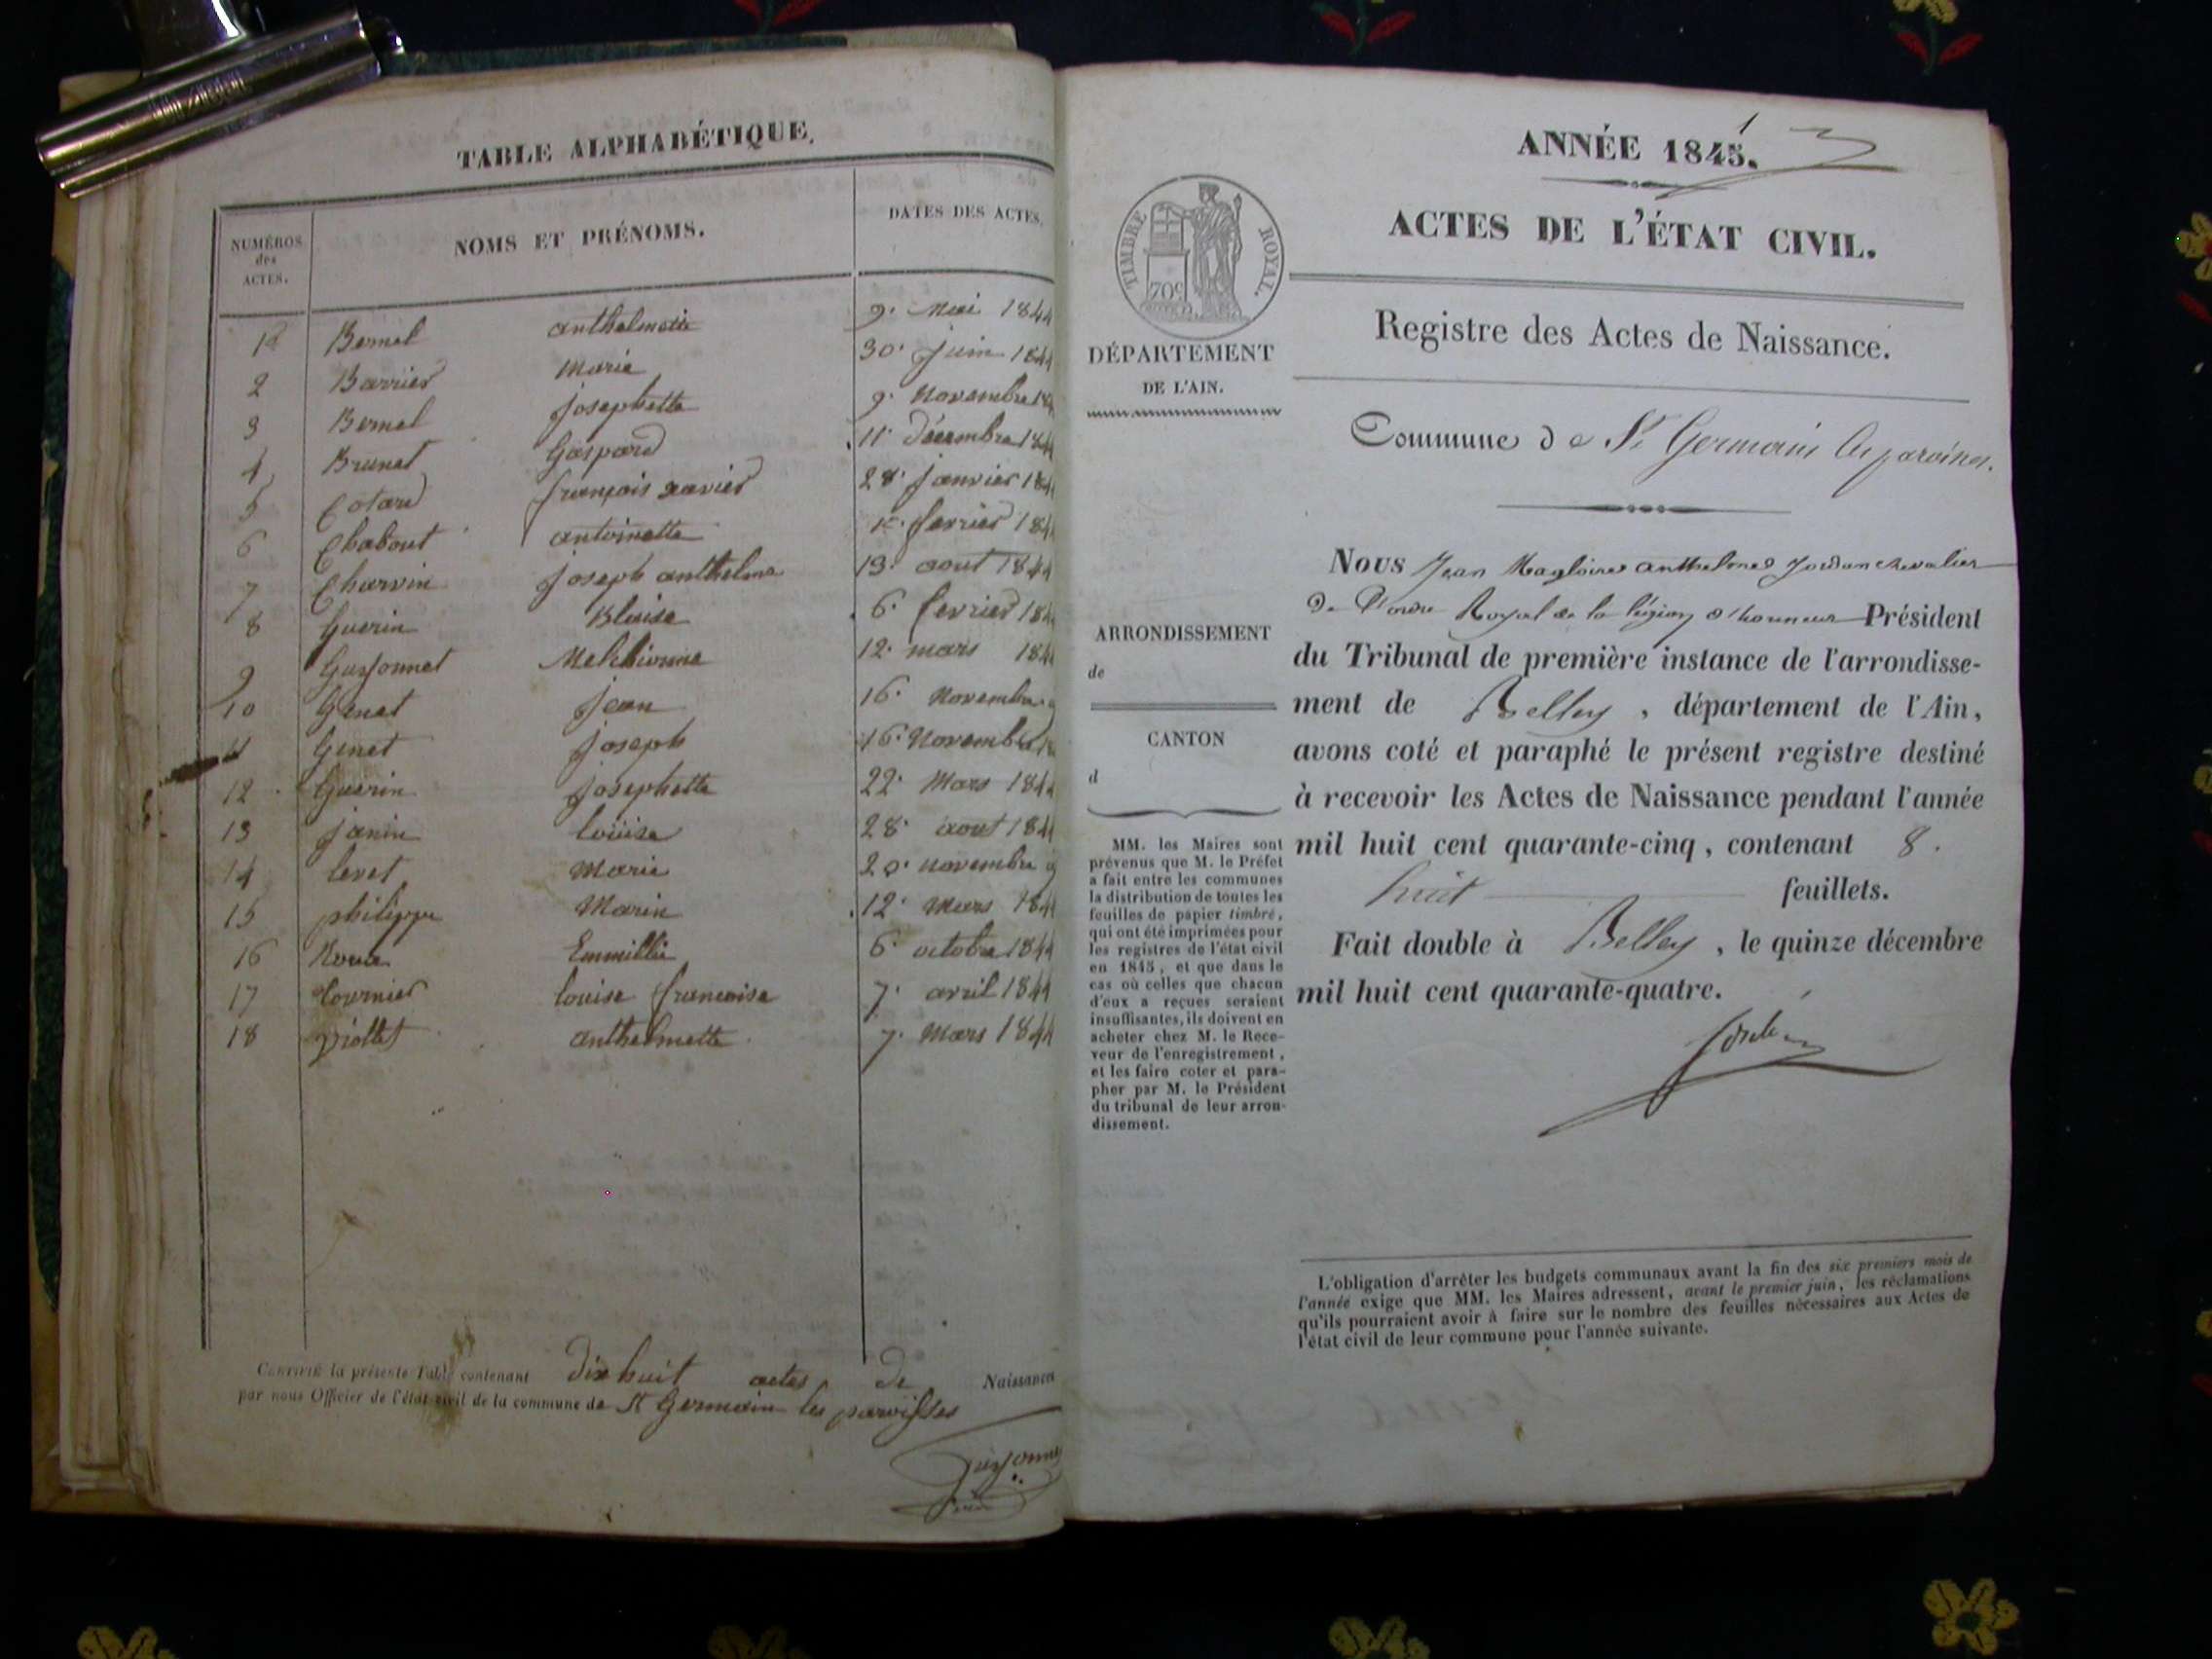 TABLE ALPHABÉTIQUE.
NUMÉROS
des
ACTES.
NOMS ET PRÉNOMS.
DATES DES ACTES.
1er Bernel anthelmette 9. Mai 1844
2 Barrier Marie 30. juin 1844
3 Bernel josephette 9. Novembre 184
4 Brunet Gaspard 11. décembre 1844
5 Cotard françois xavier 28. janvier 184
6 Chabout antoinette 1er. fevrier 184
7 Charvin joseph anthelme 13. aout 1844
8 Guerin Blaise 6. fevrier 184
9 Guyonnet Melchionne 12. mars 184
10 Genet jean 16. Novembre
11 Genet joseph 16. Novembre
12 Guerin josephette 22. Mars 184
13 janin louïse 28. aout 184
14 levet Marie 20. novembre
15 philippe Marin 12. Mars 184
16 Roux Emmillie 6. octobre 1844
17 tournier louise francoise 7. avril 1844
18 viollet anthelmette 7. Mars 1844
CERTIFIÉ la présente Table contenant dix huit actes de Naissances
par nous Officier de l'état civil de la commune de St Germain les paroisses
1
ANNÉE 1845.
ACTES DE L'ÉTAT CIVIL.
TIMBRE ROYAL.
70c
Registre des Actes de Naissance.
DÉPARTEMENT
DE L'AIN.
Commune de St Germain les paroisses.
Nous Jean Magloire anthelme Jordan chevalier
de l'ordre Royal de la légion d'honneur Président
du Tribunal de première instance de l'arrondisse-
ment de Belley, département de l'Ain,
avons coté et paraphé le présent registre destiné
à recevoir les Actes de Naissance pendant l'année
mil huit cent quarante-cinq, contenant 8.
huit feuillets.
Fait double à Belley, le quinze décembre
mil huit cent quarante-quatre.
Jordan
ARRONDISSEMENT
de
CANTON
d
MM. les Maires sont
prévenus que M. le Préfet
a fait entre les communes
la distribution de toutes les
feuilles de papier timbré,
qui ont été imprimées pour
les registres de l'état civil
en 1845, et que dans le
cas où celles que chacun
d'eux a reçues seraient
insuffisantes, ils doivent en
acheter chez M. le Rece-
veur de l'enregistrement,
et les faire coter et para-
pher par M. le Président
du tribunal de leur arron-
dissement.
L'obligation d'arrêter les budgets communaux avant la fin des six premiers mois de
l'année exige que MM. les Maires adressent, avant le premier juin, les réclamations
qu'ils pourraient avoir à faire sur le nombre des feuilles nécessaires aux Actes de
l'état civil de leur commune pour l'année suivante.